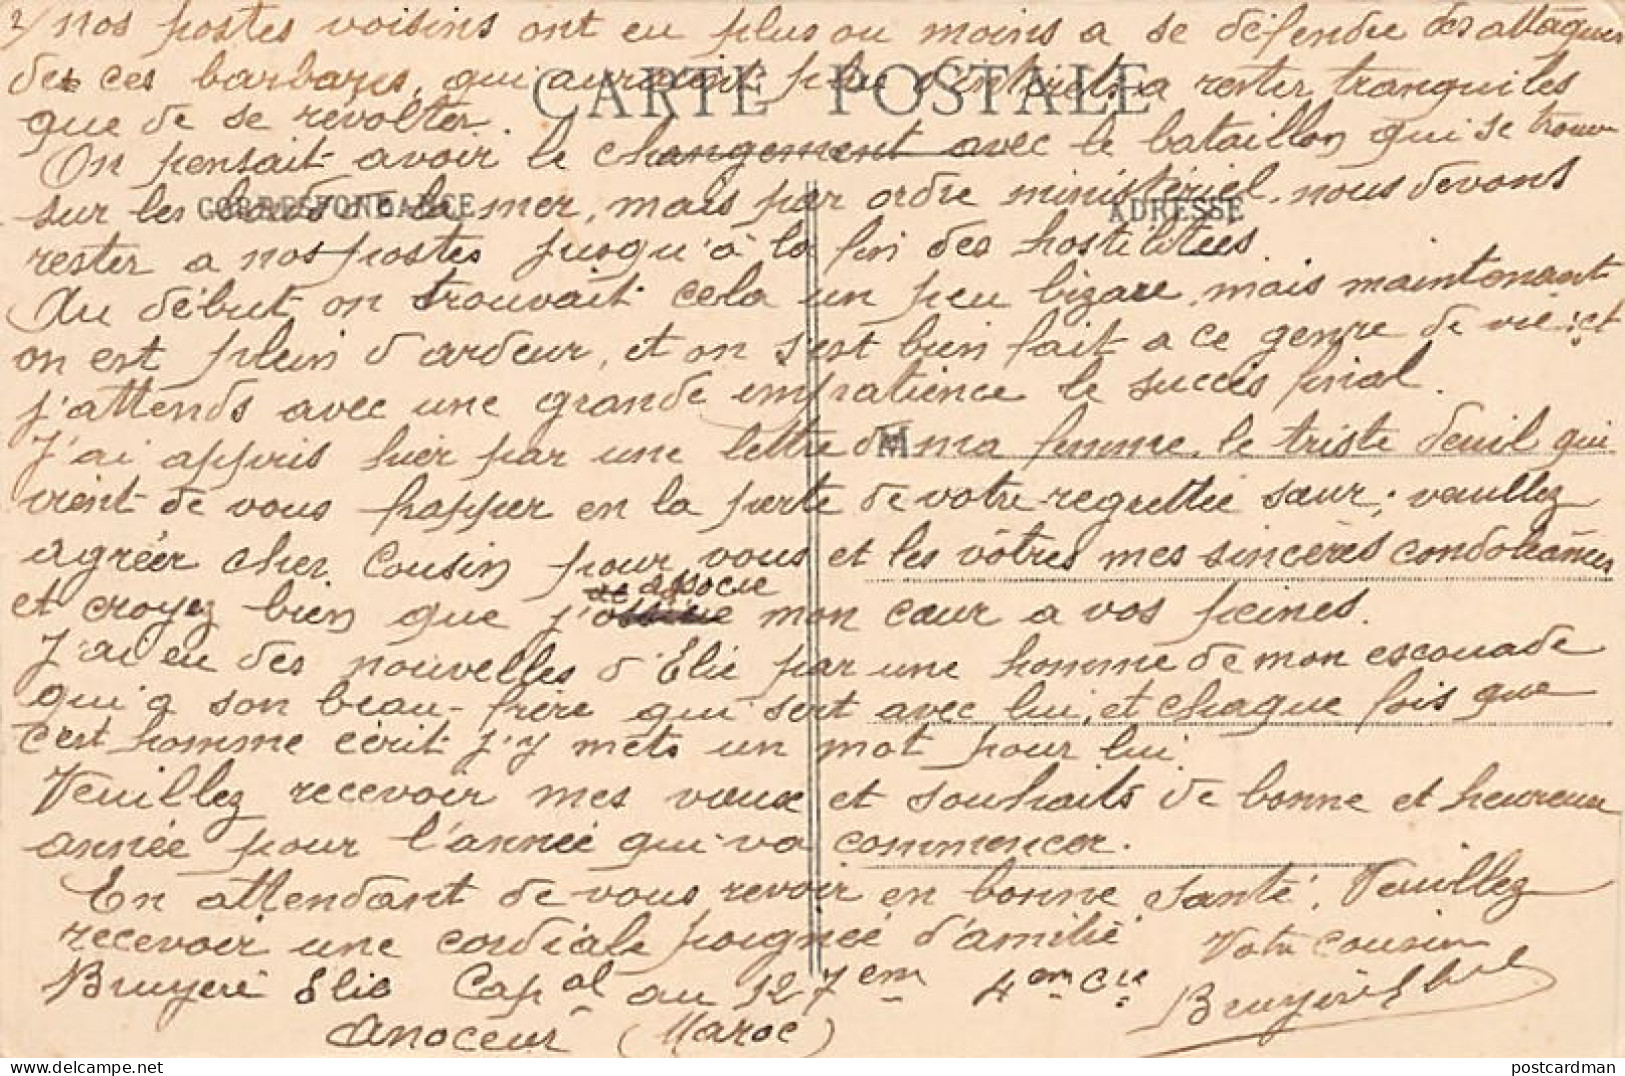 2/ nos postes voisins ont eu plus ou moins a se défendre des attaques
de ces barbares, qui auraient plus d'intérêts a rester tranquiles
CARTE POSTALE
que de se révolter.
On pensait avoir le changement avec le bataillon qui se trouve
sur les bords de la mer, mais par ordre ministériel, nous devons
CORRESPONDANCE
ADRESSE
rester a nos postes jusqu'à la fin des hostilitées
Au début on trouvait cela un peu bizare, mais maintenant
on est plein d'ardeur, et on s'est bien fait a ce genre de vie: et
j'attends avec une grande impatience le succès final.
J'ai appris hier par une lettre de ma femme, le triste deuil qui
M
vient de vous frapper en la perte de votre regrettée sœur; veuillez
agréer cher Cousin pour vous et les vôtres mes sincères condoléances
associe
et croyez bien que j' mon cœur a vos peines.
J'ai eu des nouvelles d'Elie par une homme de mon escouade
qui a son beau-frère qui sert avec lui, et chaque fois que
c'est homme écrit j'y mets un mot pour lui.
Veuillez recevoir mes vœux et souhaits de bonne et heureuse
année pour l'année qui va commencer.
En attendant de vous revoir en bonne santé, Veuillez
recevoir une cordiale poignée d'amitié
Votre Cousin
Bruyère Elie Capal au 127em 4em Cie
Bruyère
Anoceur (Maroc)
postcardman